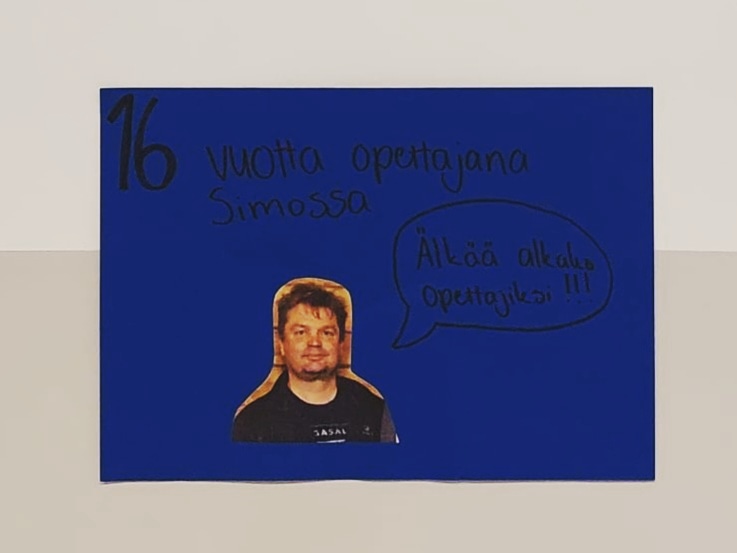 16 vuotta opettajana
Simossa
Älkää alkako
opettajiksi !!!
SASAL